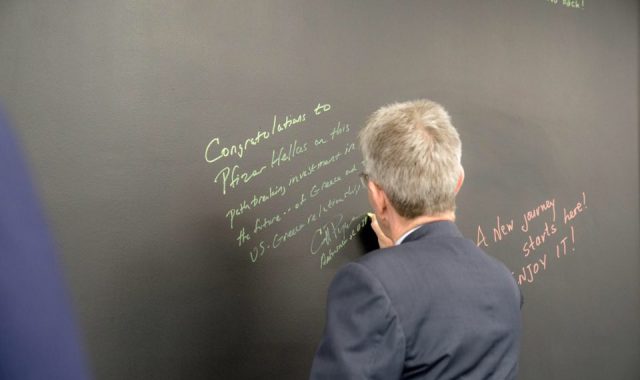 Congratulations to
Pfizer Hellas on this
pathbreaking investment in
the future... of Greece and
US-Greece relationship
A New journey
starts here!
ENJOY IT!